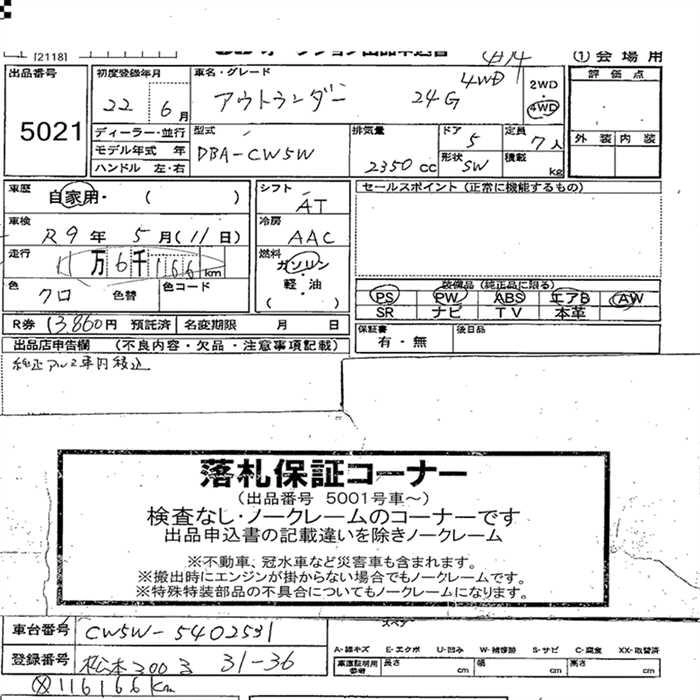 [2118]
① 会 場 用
出品番号
5021
初度登録年月
22 6 月
車名・グレード
アウトランダー 24G 4WD
2WD
・
4WD
評 価 点
外 装 内 装
ディーラー・並行
モデル年式 年
ハンドル 左・右
型式
DBA-CW5W
排気量
2350 cc
ドア
5
形状
SW
定員
7 人
積載
kg
車歴
自家用・ ( )
シフト
AT
セールスポイント (正常に機能するもの)
車検
R9 年 5 月(11 日)
冷房
AAC
走行
11 万 6 千 166 km
燃料
ガソリン
・
軽 油
( )
色
クロ
色替
色コード
装備品 (純正品に限る)
PS PW ABS エアB AW
SR ナビ TV 本革
R券 13,860円 預託済 名変期限 月 日
保証書
有・無
後日品
出品店申告欄 (不良内容・欠品・注意事項記載)
純正アルミ車内積込
落札保証コーナー
(出品番号 5001号車～)
検査なし・ノークレームのコーナーです
出品申込書の記載違いを除きノークレーム
※不動車、冠水車など災害車も含まれます。
※搬出時にエンジンが掛からない場合でもノークレームです。
※特殊特装部品の不具合についてもノークレームになります。
車台番号
CW5W-5402531
スペア
登録番号
松本300 31-36
A-線キズ E-エクボ U-凹み W-補修跡 S-サビ C-腐食 XX-取替済
車庫証明用
参考
長さ cm 幅 cm 高さ cm
116166 Km